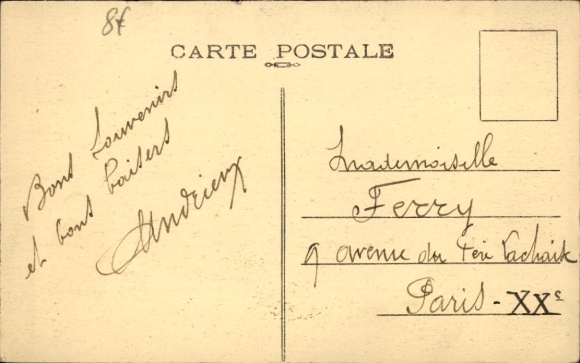 8f
CARTE POSTALE
Bons souvenirs
et bons baisers
Andrieux
Mademoiselle
Ferry
9 avenue du Père Lachaise
Paris - XXe